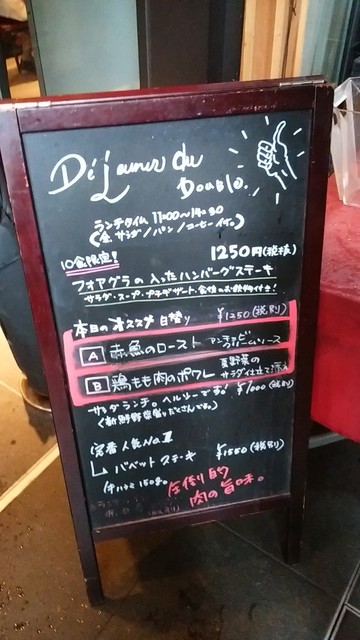 Dijeuner du
Double.
ランチタイム 11:00〜14:30
(全 サラダ/パン/コーヒー付。)
10食限定!
1250円(税抜)
フォアグラの入ったハンバーグステーキ
サラダ・スープ・プチデザート・食後のお飲物付き!
本日のオススメ 日替り ¥1250(税別)
A 赤魚のロースト
B 鶏もも肉のポワレ 夏野菜の サラダ仕立て
サラダランチ。ヘルシーです! ¥1000(税別)
(新鮮野菜盛りだくさんです。)
定番人気No.1
バベットステーキ ¥1550(税別)
牛ハラミ 150g。
圧倒的
肉の旨味。